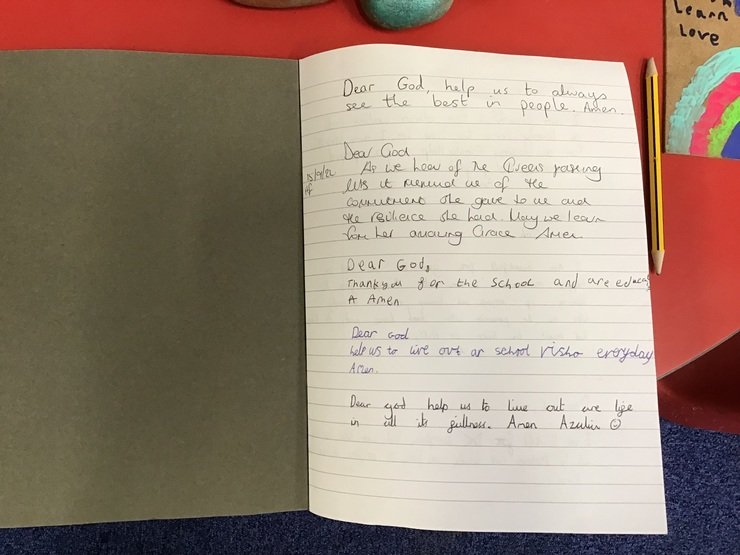 Learn
Love
Dear God, help us to always
see the best in people. Amen.
Dear God
15/9/22
As we hear of the Queens passing
lets it remind us of the
commitment she gave to us and
the resilience she had. May we learn
from her amazing Grace. Amen
Dear God,
Thankyou for the school and are
A Amen
Dear God
help us to live out ar school visho everyday
Amen.
Dear god help us to live out are life
in all its fullness. Amen